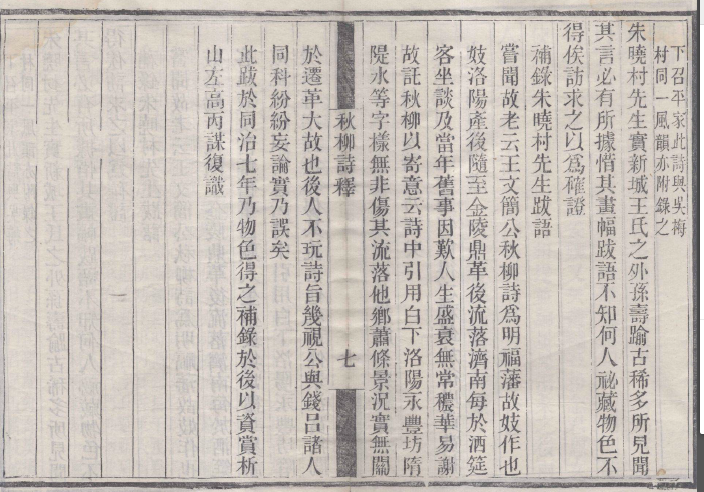 下召平家此詩與吳梅
村同一風韻亦附錄之
朱曉村先生實新城王氏之外孫壽踰古稀多所見聞
其言必有所據惜其畫幅跋語不知何人祕藏物色不
得俟訪求之以為確證
補錄朱曉村先生跋語
嘗聞故老云王文簡公秋柳詩為明福藩故妓作也
妓洛陽產後隨至金陵鼎革後流落濟南每於酒筵
客坐談及當年舊事因歎人生盛衰無常穠華易謝
故託秋柳以寄意云詩中引用白下洛陽永豐坊隋
隄水等字樣無非傷其流落他鄉蕭條景況實無關
秋柳詩釋
七
於遷革大故也後人不玩詩旨幾視公與錢呂諸人
同科紛紛妄論實乃誤矣
此跋於同治七年乃物色得之補錄於後以資賞析
山左高丙謀復識